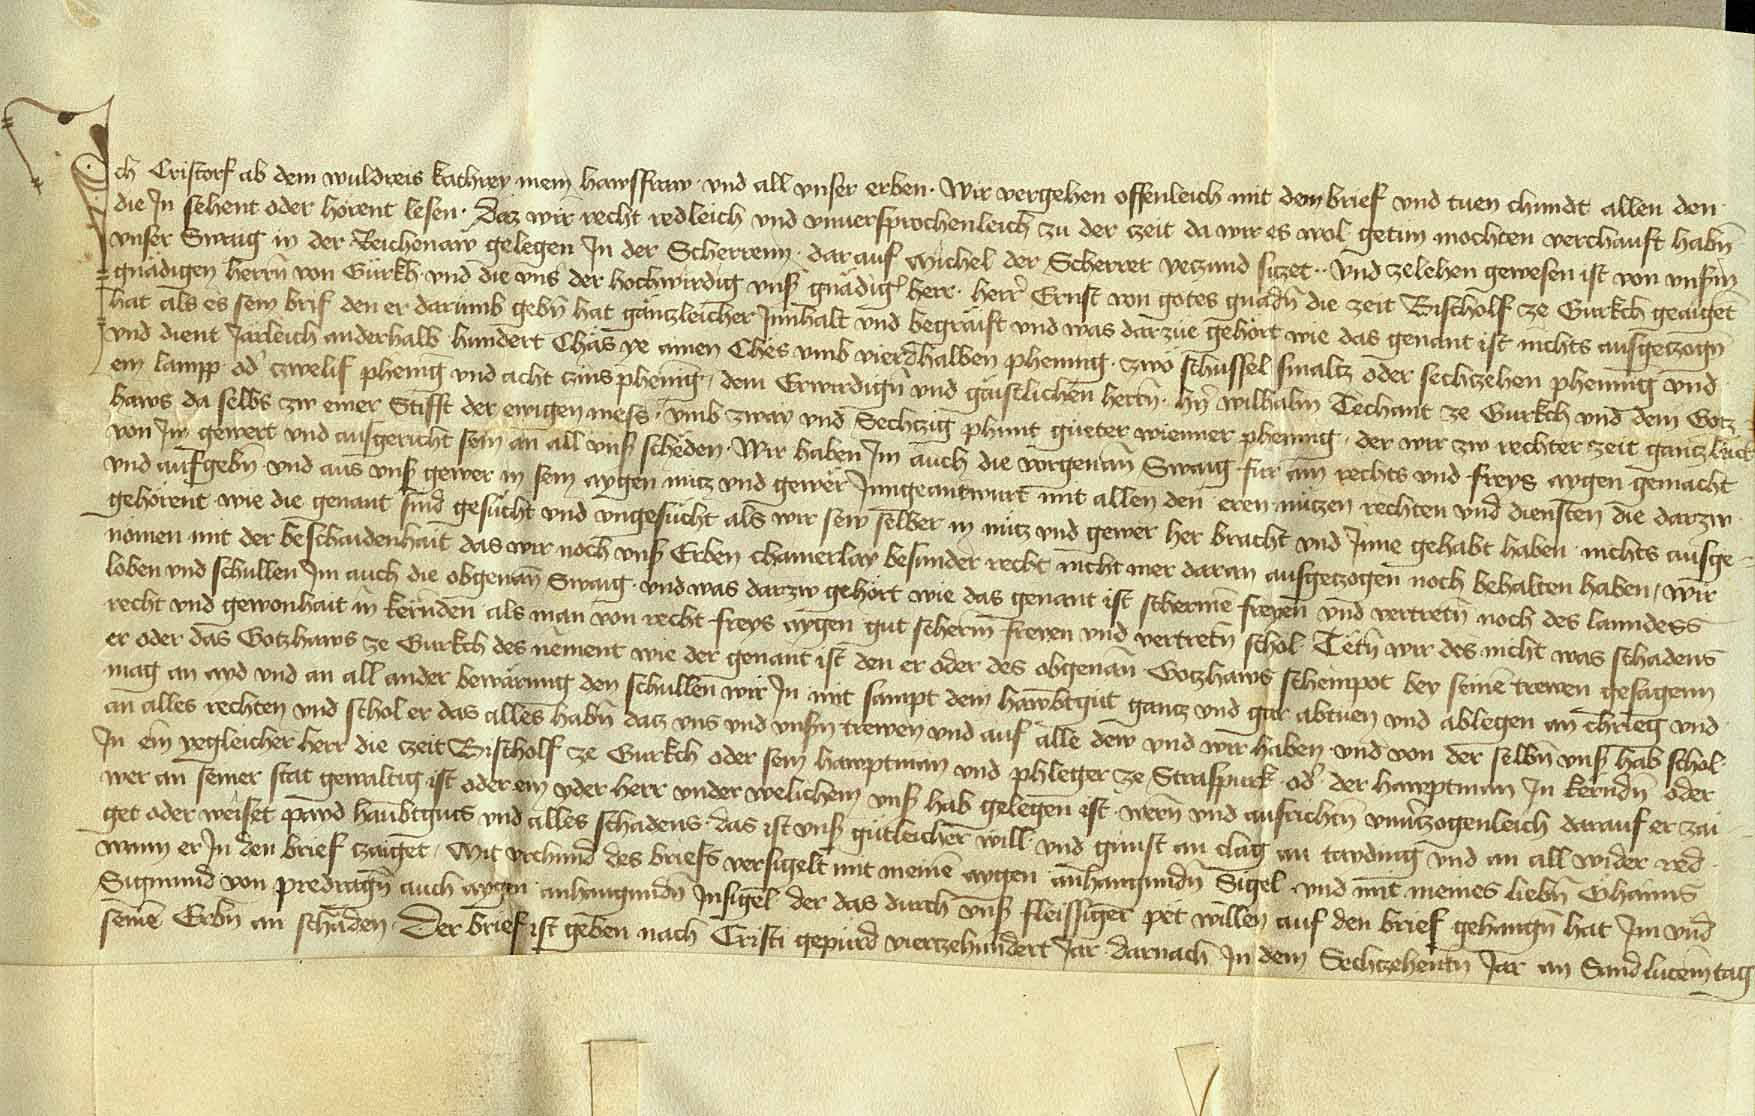 Ich Cristorf ab dem wuldreis kathrey mein hawsfraw · vnd all vnser erben · Wir vergehen offenleich mit dem brief vnd tuen chundt allen den
die In sehent oder horent lesen · Daz wir recht redleich vnd vnuersprochenleich zu der czeit da wir es wol getun mochten verchauft habñ
vnser Swaig in der Reichenaw gelegen In der Scherreny · darauf Michel der Scherrer yeczund siczet ·· vnd zelehen gewesen ist von vnsm̄
gnädigen herrñ von Gürkh · vnd die vns der hochwirdig vnsꝰ gnädigꝰ herr · herr Ernst von gotes gnadñ die zeit Bischolf ze Gurkch geaiget
hat als es sein brif den er darumb gebñ hat gänczleicher Innhalt vnd begräift vnd was darzue gehört wie das genant ist nichts ausgeczogñ
vnd dient Järleich anderhalb hundert Chäs ye ainen Ches vmb vierdhalben phennig · zwo schussel smaltz oder sechczehen phennig vnd
ein lampp odꝰ czwelif phenīg vnd acht czins phenīg · dem Erwirdigñ vnd gäistlichen herrñ · hñ wilhalm Techant ze Gurkch vnd dem Gotz
haws da selbs zw einer Stifft der ewigen mess · vmb zway vnd Sechczig phunt gueter wienner phennig · der wir zw rechter zeit ganczleich
von Im gewert vnd ausgericht sein an all vnsꝰ scheden · Wir haben Im auch die vorgenañ Swaig für ain rechts vnd freys aygen gemacht
vnd aufgebñ vnd aus vnsꝰ gewer in sein aygen nutz vnd gewer Inngeantwurt mit allen den eren nuczen rechten vnd diensten die darzw
gehörent wie die genant sind gesucht vnd vngesucht als wir sew selber in nutz vnd gewer her bracht vnd Inne gehabt haben nichts ausge-
nomen mit der beschaidenhait das wir noch vnsꝰ Erben chainerlay besunder recht nicht mer daran ausgeczogen noch behalten haben / wir
loben vnd schullen Im auch die obgenañ Swaig · vnd was darzw gehört wie das genant ist schermē freyen vnd vertretñ noch des lanndess
recht vnd gewonhait in kernden als man von recht freys aygen gut scherm̄ freyen vnd vertretñ schol · Tetñ wir des nicht was schadens
er oder das Gotzhaws ze Gurkch des nēment wie der genant ist den er oder des obgenañ Gotzhaws scheinpot bey seinē trewen gesagenn
mag an ayd vnd an all ander bewärung den schullen wir In mit sampt dem hawbtgut gantz vnd gar abtuen vnd ablegen an chrieg vnd
an alles rechten vnd schol er das alles habñ daz vns vnd vnsñ trewen vnd auf alle dew vnd wir haben · vnd von der selbñ vnsꝰ hab schol
In ein yegleicher herr die czeit Bischolf ze Gurkch oder sein hawptman vnd phleger ze Straspurk odꝰ der hawptman In kerndñ oder
wer an seiner stat gewaltig ist oder ein yder herr vnder welichem vnsꝰ hab gelegen ist wern vnd ausrichtñ vnuꝰczogenleich darauf er zai-
get oder weiset pawd haubtguts vnd alles schadens · das ist vnsꝰ gütleicher will vnd gunst an clag an tayding vnd an all wider red
wann er In den brief czaiget · Mit vrchund des briefs versigelt mit meinē aygen anhangundñ Sigel · vnd mit meines liebñ Ohaims
Sigmund von predragñ auch aygen anhangundñ Insigel der das durch vnsꝰ fleissiger pet willen auf den brief gehangñ hat Im vnd
seinē Erbñ an schaden · Der brief ist geben nach Cristi gepurd vierczehundert Jar · darnach In dem Sechczehentñ Jar an Sand lucein tag